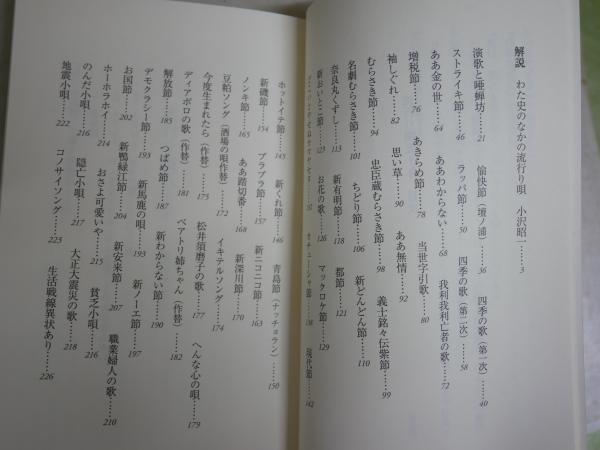 解説 わた史のなかの流行り唄 小沢昭一……3
演歌と唖蟬坊……21 愉快節（壇ノ浦）……36 四季の歌（第一次）……40
ストライキ節……46 ラッパ節……50 四季の歌（第二次）……58
ああ金の世……64 ああわからない……68 我利我利亡者の歌……72
増税節……76 あきらめ節……78 当世字引歌……80
袖しぐれ……82 思い草……90 ああ無情……92
むらさき節……94 忠臣蔵むらさき節……98 義士銘々伝紫節……99
名劇むらさき節……101 ちどり節……106 新どんどん節……110
奈良丸くずし……113 新有明節……118 都節……121
新おいとこ節……123 お花の歌……126 マックロケ節……129
カチューシャ節……138 現代節……142
ホットイテ節……145 新くれ節……146 青島節（ナッチョラン）……150
新磯節……154 ブラブラ節……157 新ニコニコ節……163
ノンキ節……165 ああ踏切番……168 新深川節……170
豆粕ソング（酒場の唄作替）……172 イキテルソング……174
今度生まれたら（作替）……175 松井須磨子の歌……177 へんな心の唄……179
ディアボロの歌（作替）……181 ベアトリ姉ちゃん（作替）……182
解放節……185 つばめ節……187 新わからない節……190
デモクラシー節……193 新馬鹿の唄……195 新ノーエ節……197
お国節……202 新鴨緑江節……204 新安来節……207 職業婦人の歌……210
ホーホラホイ……214 おさよ可愛いや……215 貧乏小唄……216
のんだ小唄……216 隠亡小唄……217 大正大震災の歌……218
地震小唄……222 コノサイソング……223 生活戦線異状あり……226